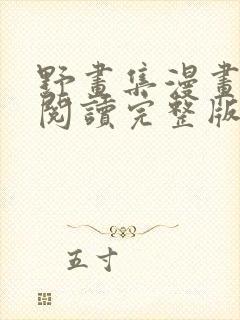 野畫集漫畫
閱讀完整版
五寸